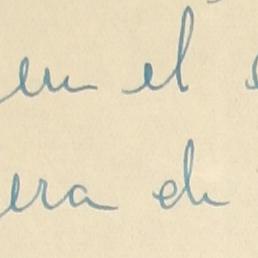 en el
era de